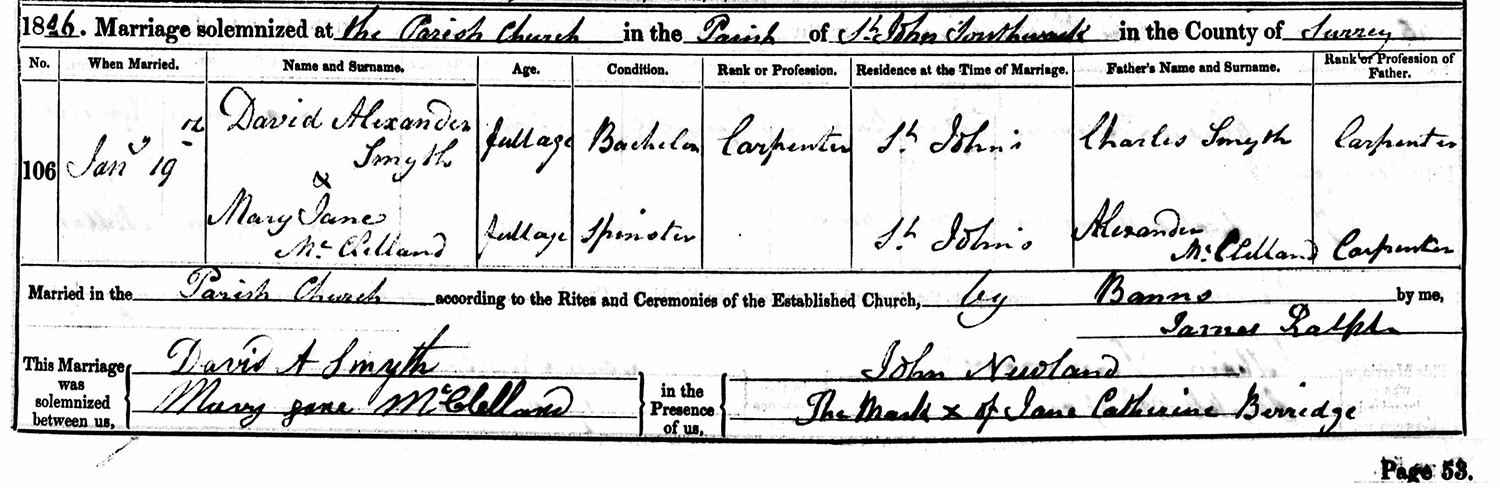 1846. Marriage solemnized at the Parish Church in the Parish of St. John Southwark in the County of Surrey
No. When Married. Name and Surname. Age. Condition. Rank or Profession. Residence at the Time of Marriage. Father's Name and Surname. Rank or Profession of Father.
106 Jany 19 David Alexander Smyth full age Bachelor Carpenter St. John's Charles Smyth Carpenter
&
Mary Jane Mc Clelland full age Spinster St. John's Alexander Mc Clelland Carpenter
Married in the Parish Church according to the Rites and Ceremonies of the Established Church, by Banns by me,
James Ralph
This Marriage was solemnized between us, David A Smyth
Mary Jane McClelland
in the Presence of us, John Newland
The Mark x of Jane Catherine Berridge
Page 53.